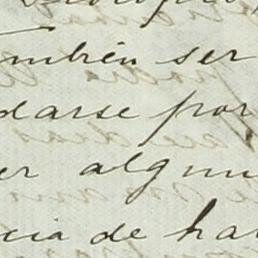 ambién ser
darse por
er algun
cia de ha